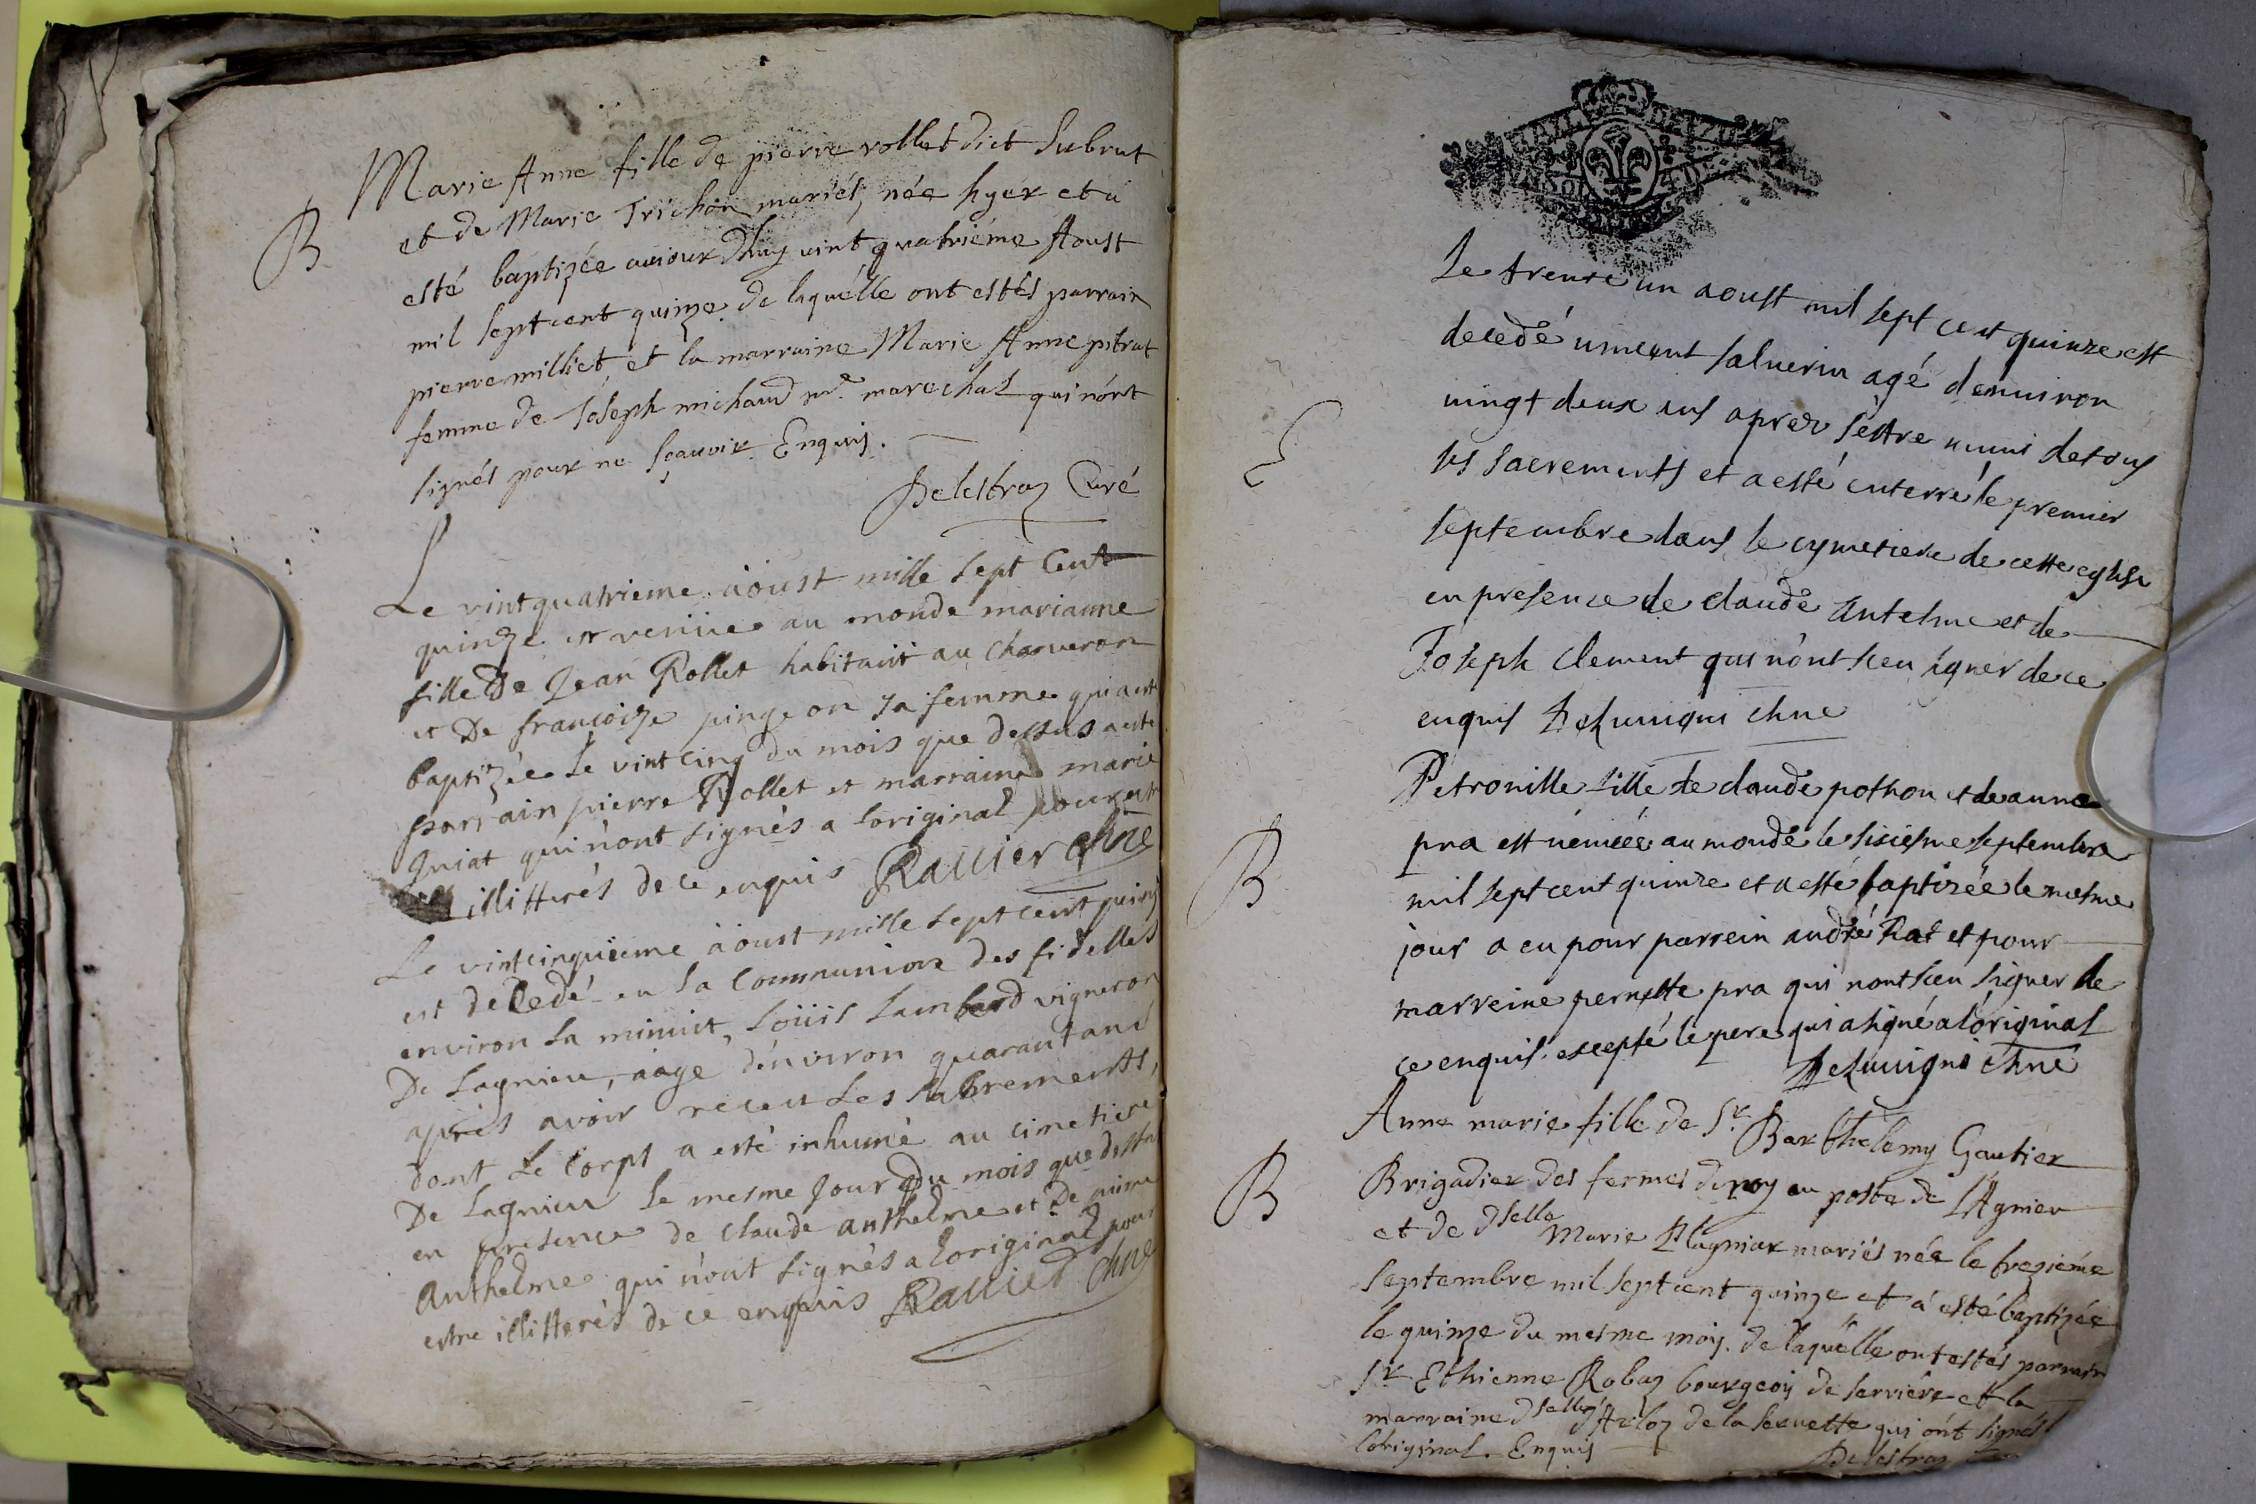 Marie Anne fille de pierre rollet dict Subrut
B
et de Marie Trichon mariés, née hyer et a
esté baptizée auiour dhuy vint quatriéme Aoust
mil sept cent quinze de laquélle ont estés parrain
pierre milliet, et la marraine Marie Anne pitrat
femme de Joseph michaud mr. marechal qui n'ont
signés pour ne sçauoir Enquis.
Delestraz Curé
Le vintquatrieme àoust mille sept Cent
quinze est veniie au monde marianne
fille De Jean Rollet habitant au Charveron
et De francoize pingeon sa femme qui a esté
baptizée Le vintcinq du mois que dessus a esté
parrain pierre Rollet et marraine marie
Guiat qui n'ont signés a Loriginal pour estre
illitterés de ce enquis Rallier Chne
Le vintcinquieme àoust mille sept cent quinze
est deCedé en La Communion des fidelles
environ La minuit, Loüis Lambard vigneron
De Lagnieu, àagé d'environ quarant ans
après avoir receu Les sacrements,
dont Le Corps a esté inhumé au cimetiere
De Lagnieu Le mesme Jour du mois que dessus
en presence de Claude anthelme et De
anthelme qui n'ont signés a Loriginal pour
estre illitterés de ce enquis Rallier Chne
Le trente un aoust mil sept cent quinze est
decedé uincent saluerin agé denuiron
uingt deux ans apres s'estre muni de tous
E
les sacrements et a esté enterré le premier
septembre dans le cymetiere de cette eglise
en presence de claude Antelme et de
Joseph Clement qui n'ont sceu signer de ce
enquis chne
Petronille fille de claude pothon et de anne
pra est uenuée au monde le sisiesme septembre
B
mil sept cent quinze et a esté baptisée le mesme
jour a eu pour parrein andré Rat et pour
marreine pernette pra qui nont sceu signer de
ce enquis excepté le pere qui a signé a l'original
chne
Anne marie fille de Sr. Barthelemy Gautier
B
Brigadier des fermes du roy au poste de LAgnieu
et de dselle Marie Plagniar mariés née le treziéme
septembre mil sept cent quinze et à esté baptizée
le quinze du mesme mois. de laquélle ont estés parrain
Sr Ethienne Robaz bourgeois de serriére et la
marraine dselle d'Arloz de la Seruette qui ónt signés
Loriginal. Enquis
Delestraz